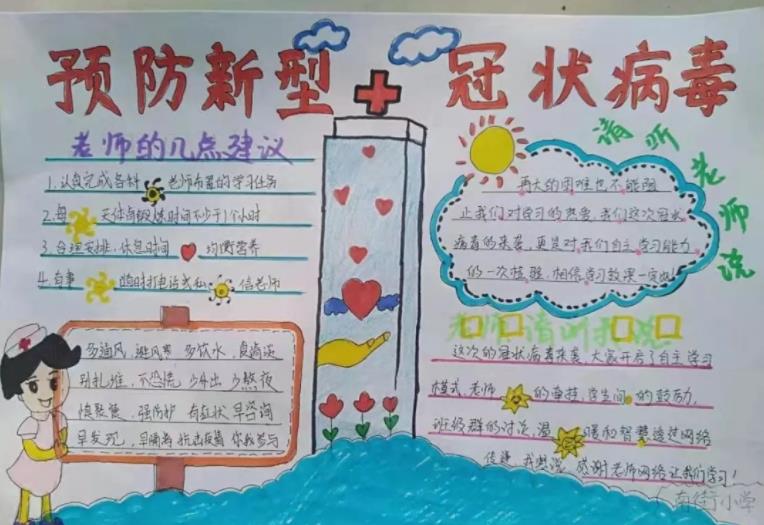 预防新型冠状病毒
老师的几点建议
1.认真完成各科老师布置的学习任务
2.每天体育锻炼时间不少于1个小时
3.合理安排,休息时间均衡营养
4.有事随时打电话或私信老师
多通风,避风寒 多饮水,食清淡
别扎堆,不恐慌 少外出 少熬夜
慎聚餐,强防护 有症状 早咨询
早发现,早隔离 抗击疫情 你我参与
请听老师说
再大的困难也不能阻
止我们对学习的热爱,我们这次冠状
病毒的来袭,更是对我们自主学习能力
的一次检验,相信学习效果一定
老师请听我说
这次的冠状病毒来袭,大家开启了自主学习
模式,老师的牵挂,学生间的鼓励,
班级群的讨论,温暖和智慧透过网络
传递 我想说 感谢老师网络让我们学习!
南街小学